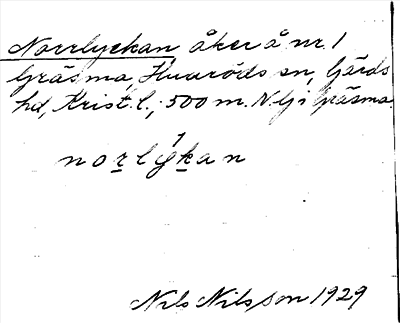 Norrlyckan åker å nr 1
Gräsma, Huaröds sn, Gärds
hd, Krist. l.; 500 m. N. lj i Gräsma
norlykan
Nils Nilsson 1929